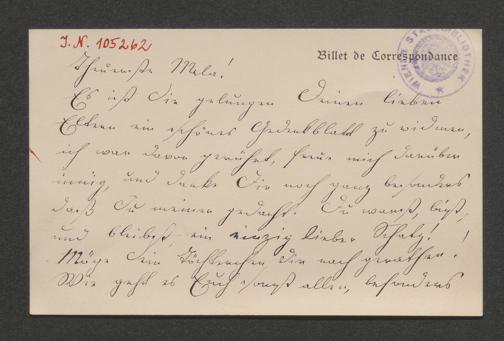 J. N. 105262
Billet de Correspondance
WIENER STADTBIBLIOTHEK
Theuerste Mela!
Es ist Dir gelungen Deinen lieben
Eltern ein schönes Gedenkblatt zu widmen,
ich war davon gerührt, freue mich darüber
innig, und danke Dir noch ganz besonders
daß Du meiner gedacht. Du warst, bist,
und bleibst, ein einzig lieber Schatz!
Möge Dein Töchterchen Dir nach gerathen.
Wie geht es Euch sonst allen, besonders